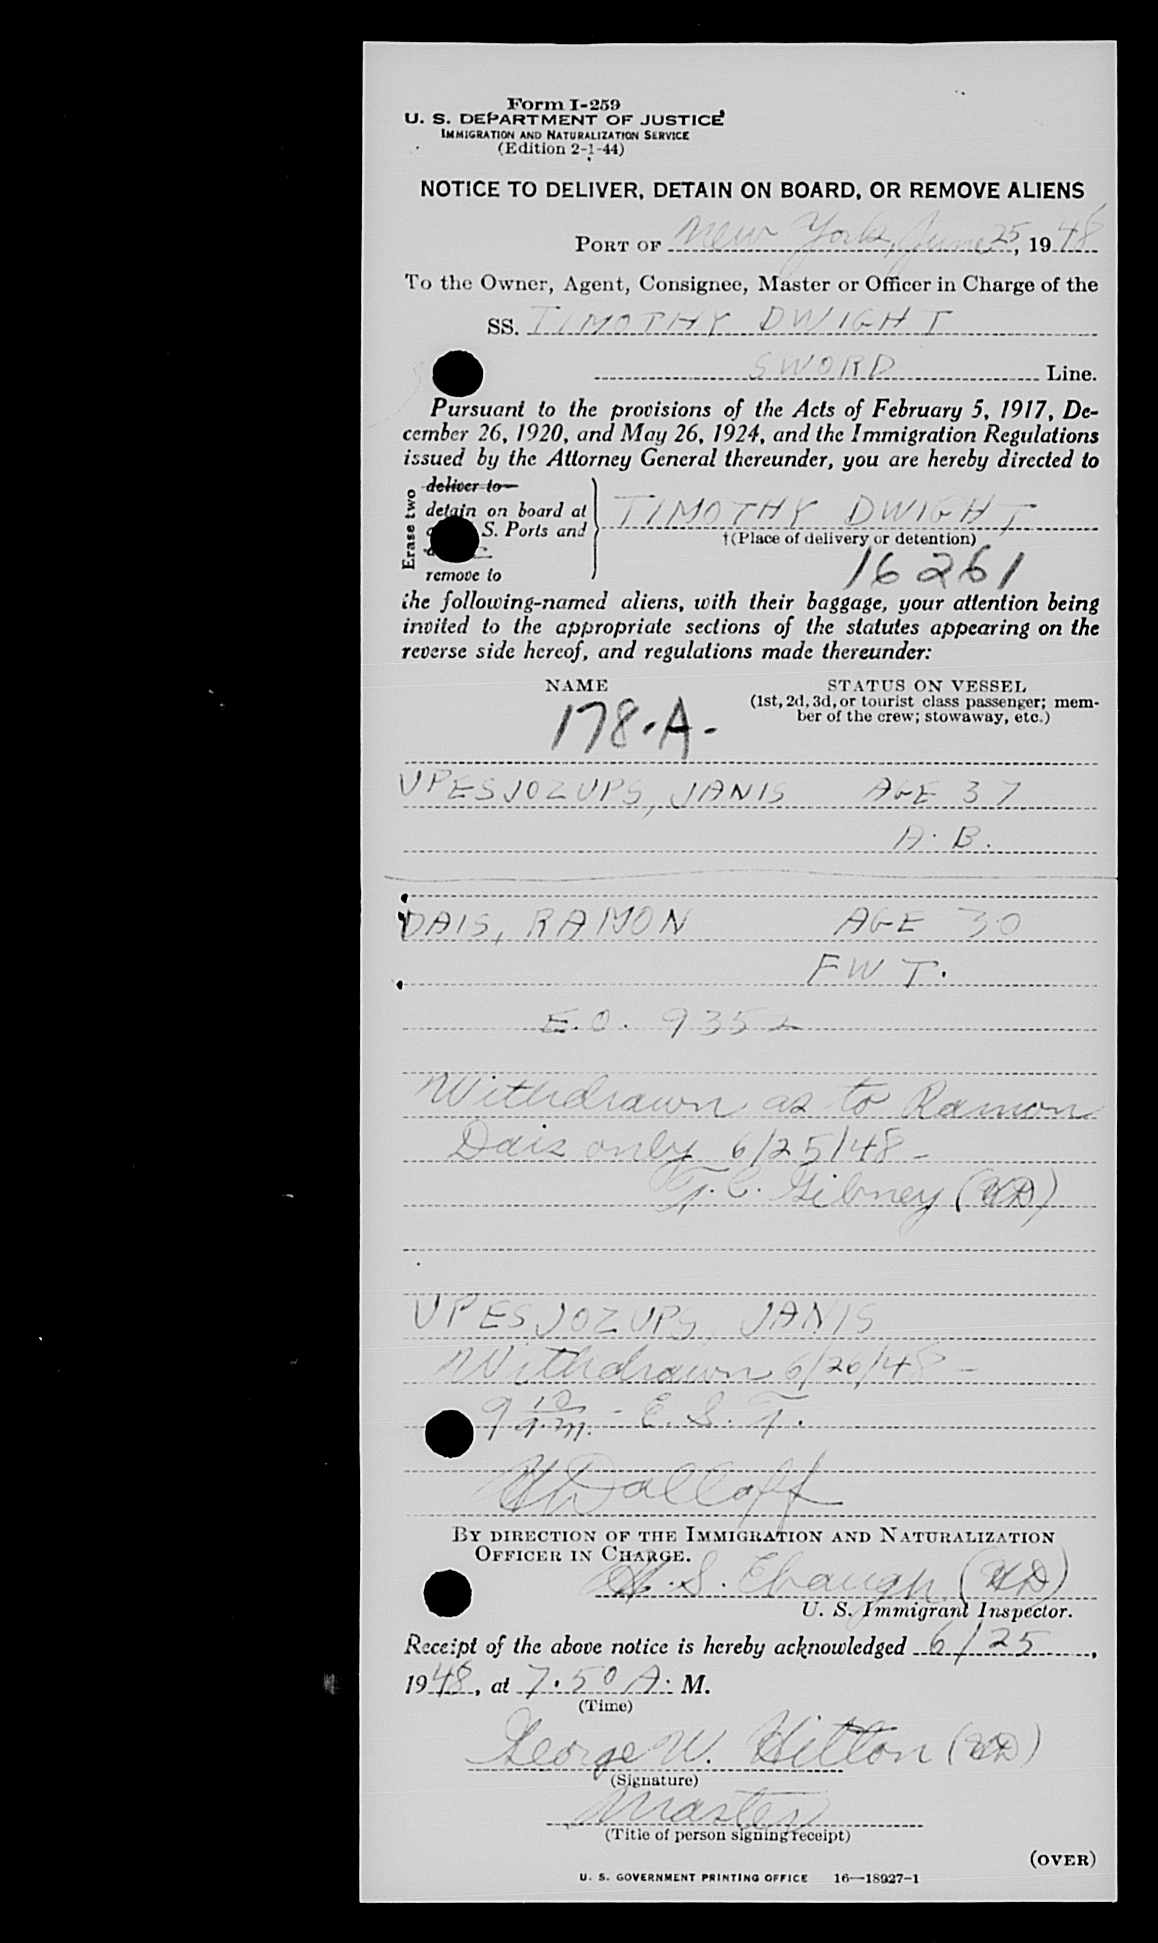 Form I-259
U. S. DEPARTMENT OF JUSTICE
IMMIGRATION AND NATURALIZATION SERVICE
(Edition 2-1-44)
NOTICE TO DELIVER, DETAIN ON BOARD, OR REMOVE ALIENS
PORT OF New York, June 25, 1948
To the Owner, Agent, Consignee, Master or Officer in Charge of the
SS. TIMOTHY DWIGHT
SWORD Line.
Pursuant to the provisions of the Acts of February 5, 1917, De-
cember 26, 1920, and May 26, 1924, and the Immigration Regulations
issued by the Attorney General thereunder, you are hereby directed to
Erase two
deliver to
detain on board at
S. Ports and
remove to
TIMOTHY DWIGHT
†(Place of delivery or detention)
16261
the following-named aliens, with their baggage, your attention being
invited to the appropriate sections of the statutes appearing on the
reverse side hereof, and regulations made thereunder:
NAME STATUS ON VESSEL
(1st, 2d, 3d, or tourist class passenger; mem-
ber of the crew; stowaway, etc.)
178-A-
UPESJOZUPS, JANIS AGE 37
A. B.
DAIS, RAMON AGE 30
FWT.
E.O. 9352
Withdrawn as to Ramon
Dais only 6/25/48 -
T. C. Gibney (HD)
UPESJOZUPS, JANIS
Withdrawn 6/26/48 -
9 10 a.m. - E. S. T.
BY DIRECTION OF THE IMMIGRATION AND NATURALIZATION
OFFICER IN CHARGE.
H. S. Ebaugh (HD)
U. S. Immigrant Inspector.
Receipt of the above notice is hereby acknowledged 6/25,
1948, at 7.50 A. M.
(Time)
George W. Hilton (HD)
(Signature)
Master
(Title of person signing receipt)
(OVER)
U. S. GOVERNMENT PRINTING OFFICE 16—18927-1